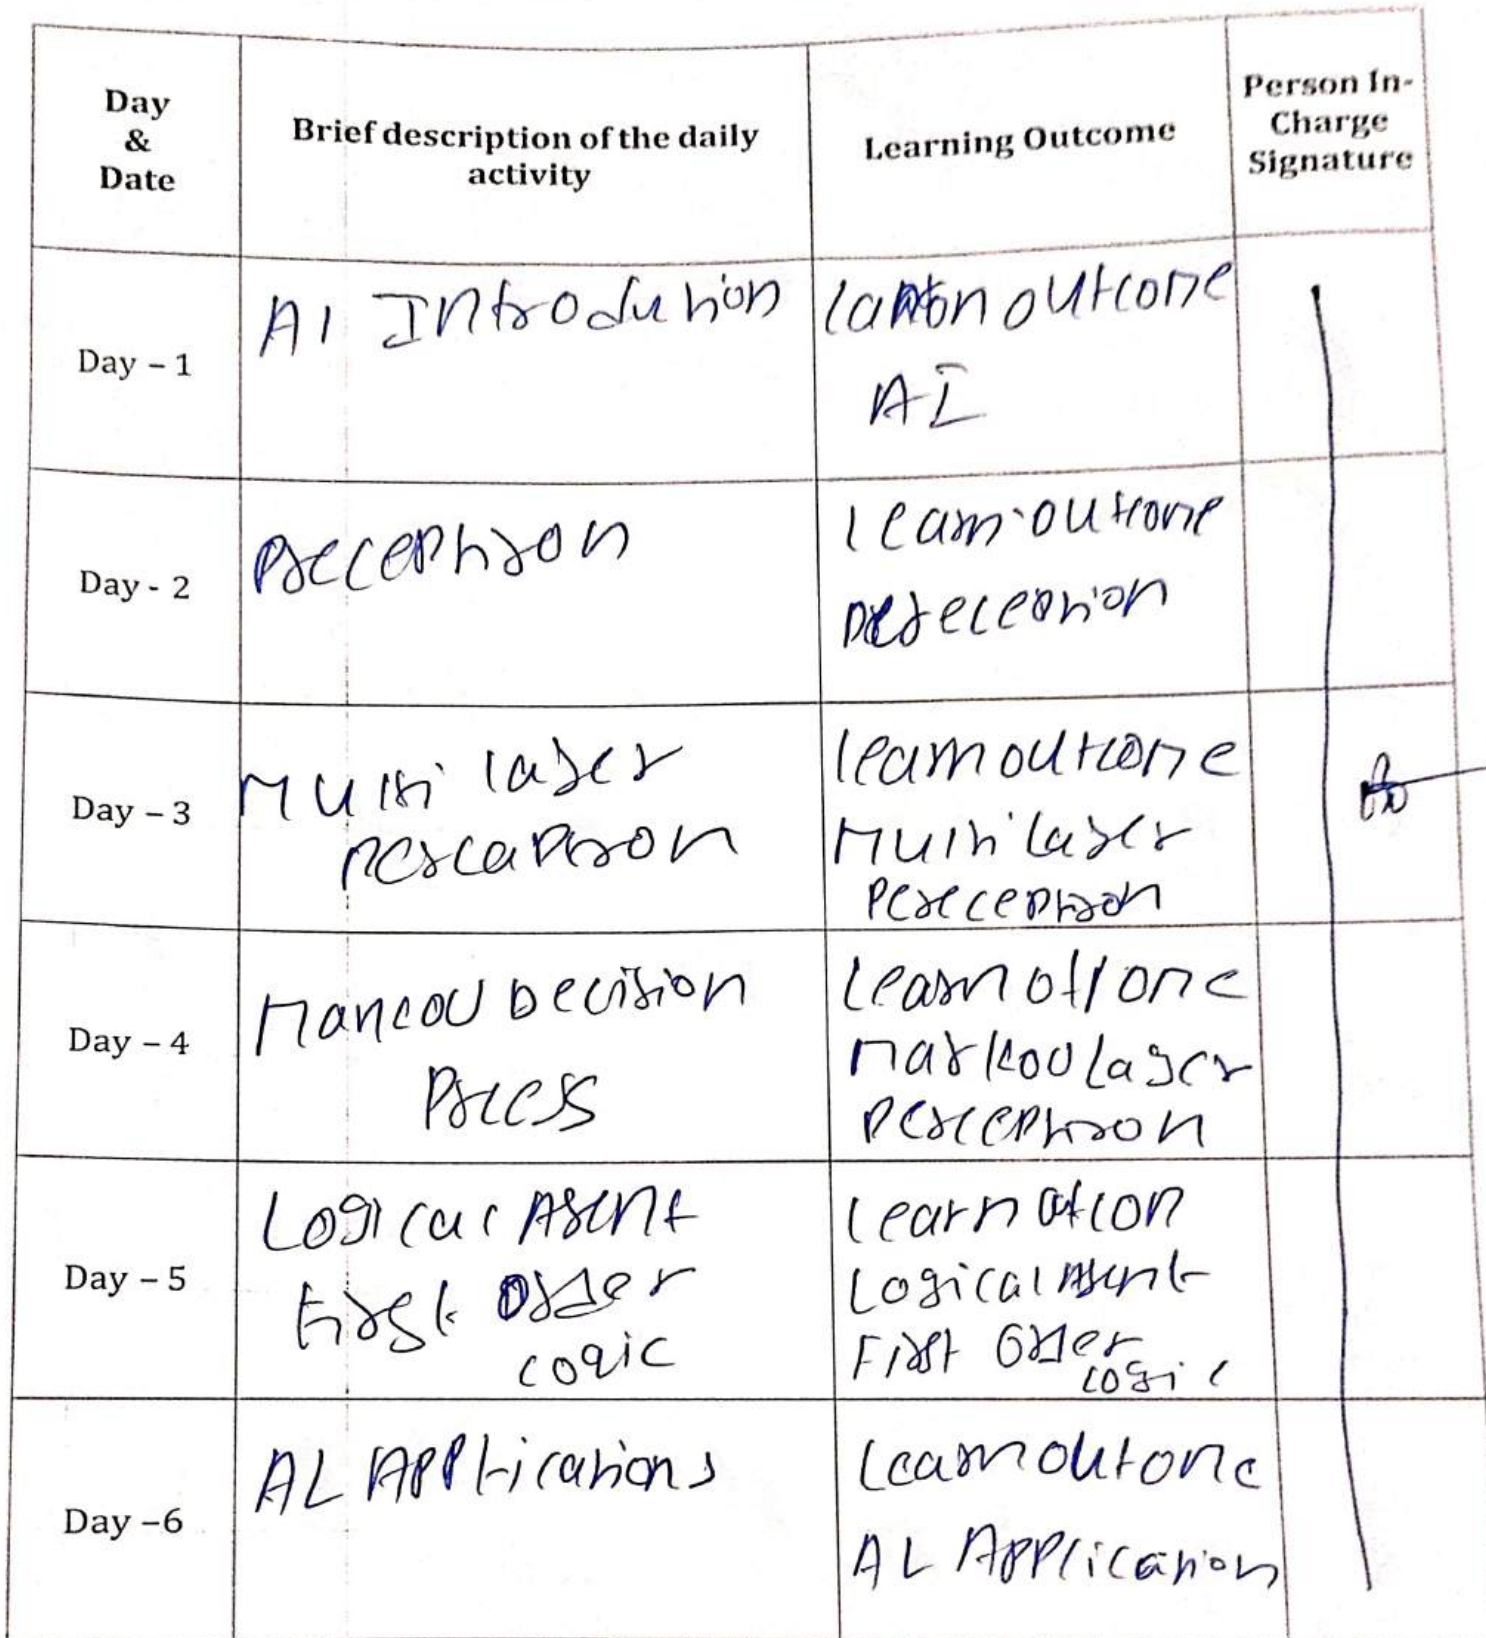 Day
&
Date
Brief description of the daily
activity
Learning Outcome
Person In-
Charge
Signature
Day – 1
AI Introduction
outcome
AI
Day - 2
Preceptron
learn outcome
Day – 3
Multi layer
Percaptron
learn outcome
Multi layer
Pereceptron
Day – 4
Decision
Process
Learn
Markov Layer
Perceptron
Day – 5
Logical Agent
First Order
Logic
Learn
Logical Agent
First Order
Logic
Day –6
AL Applications
Learn outone
AL Application